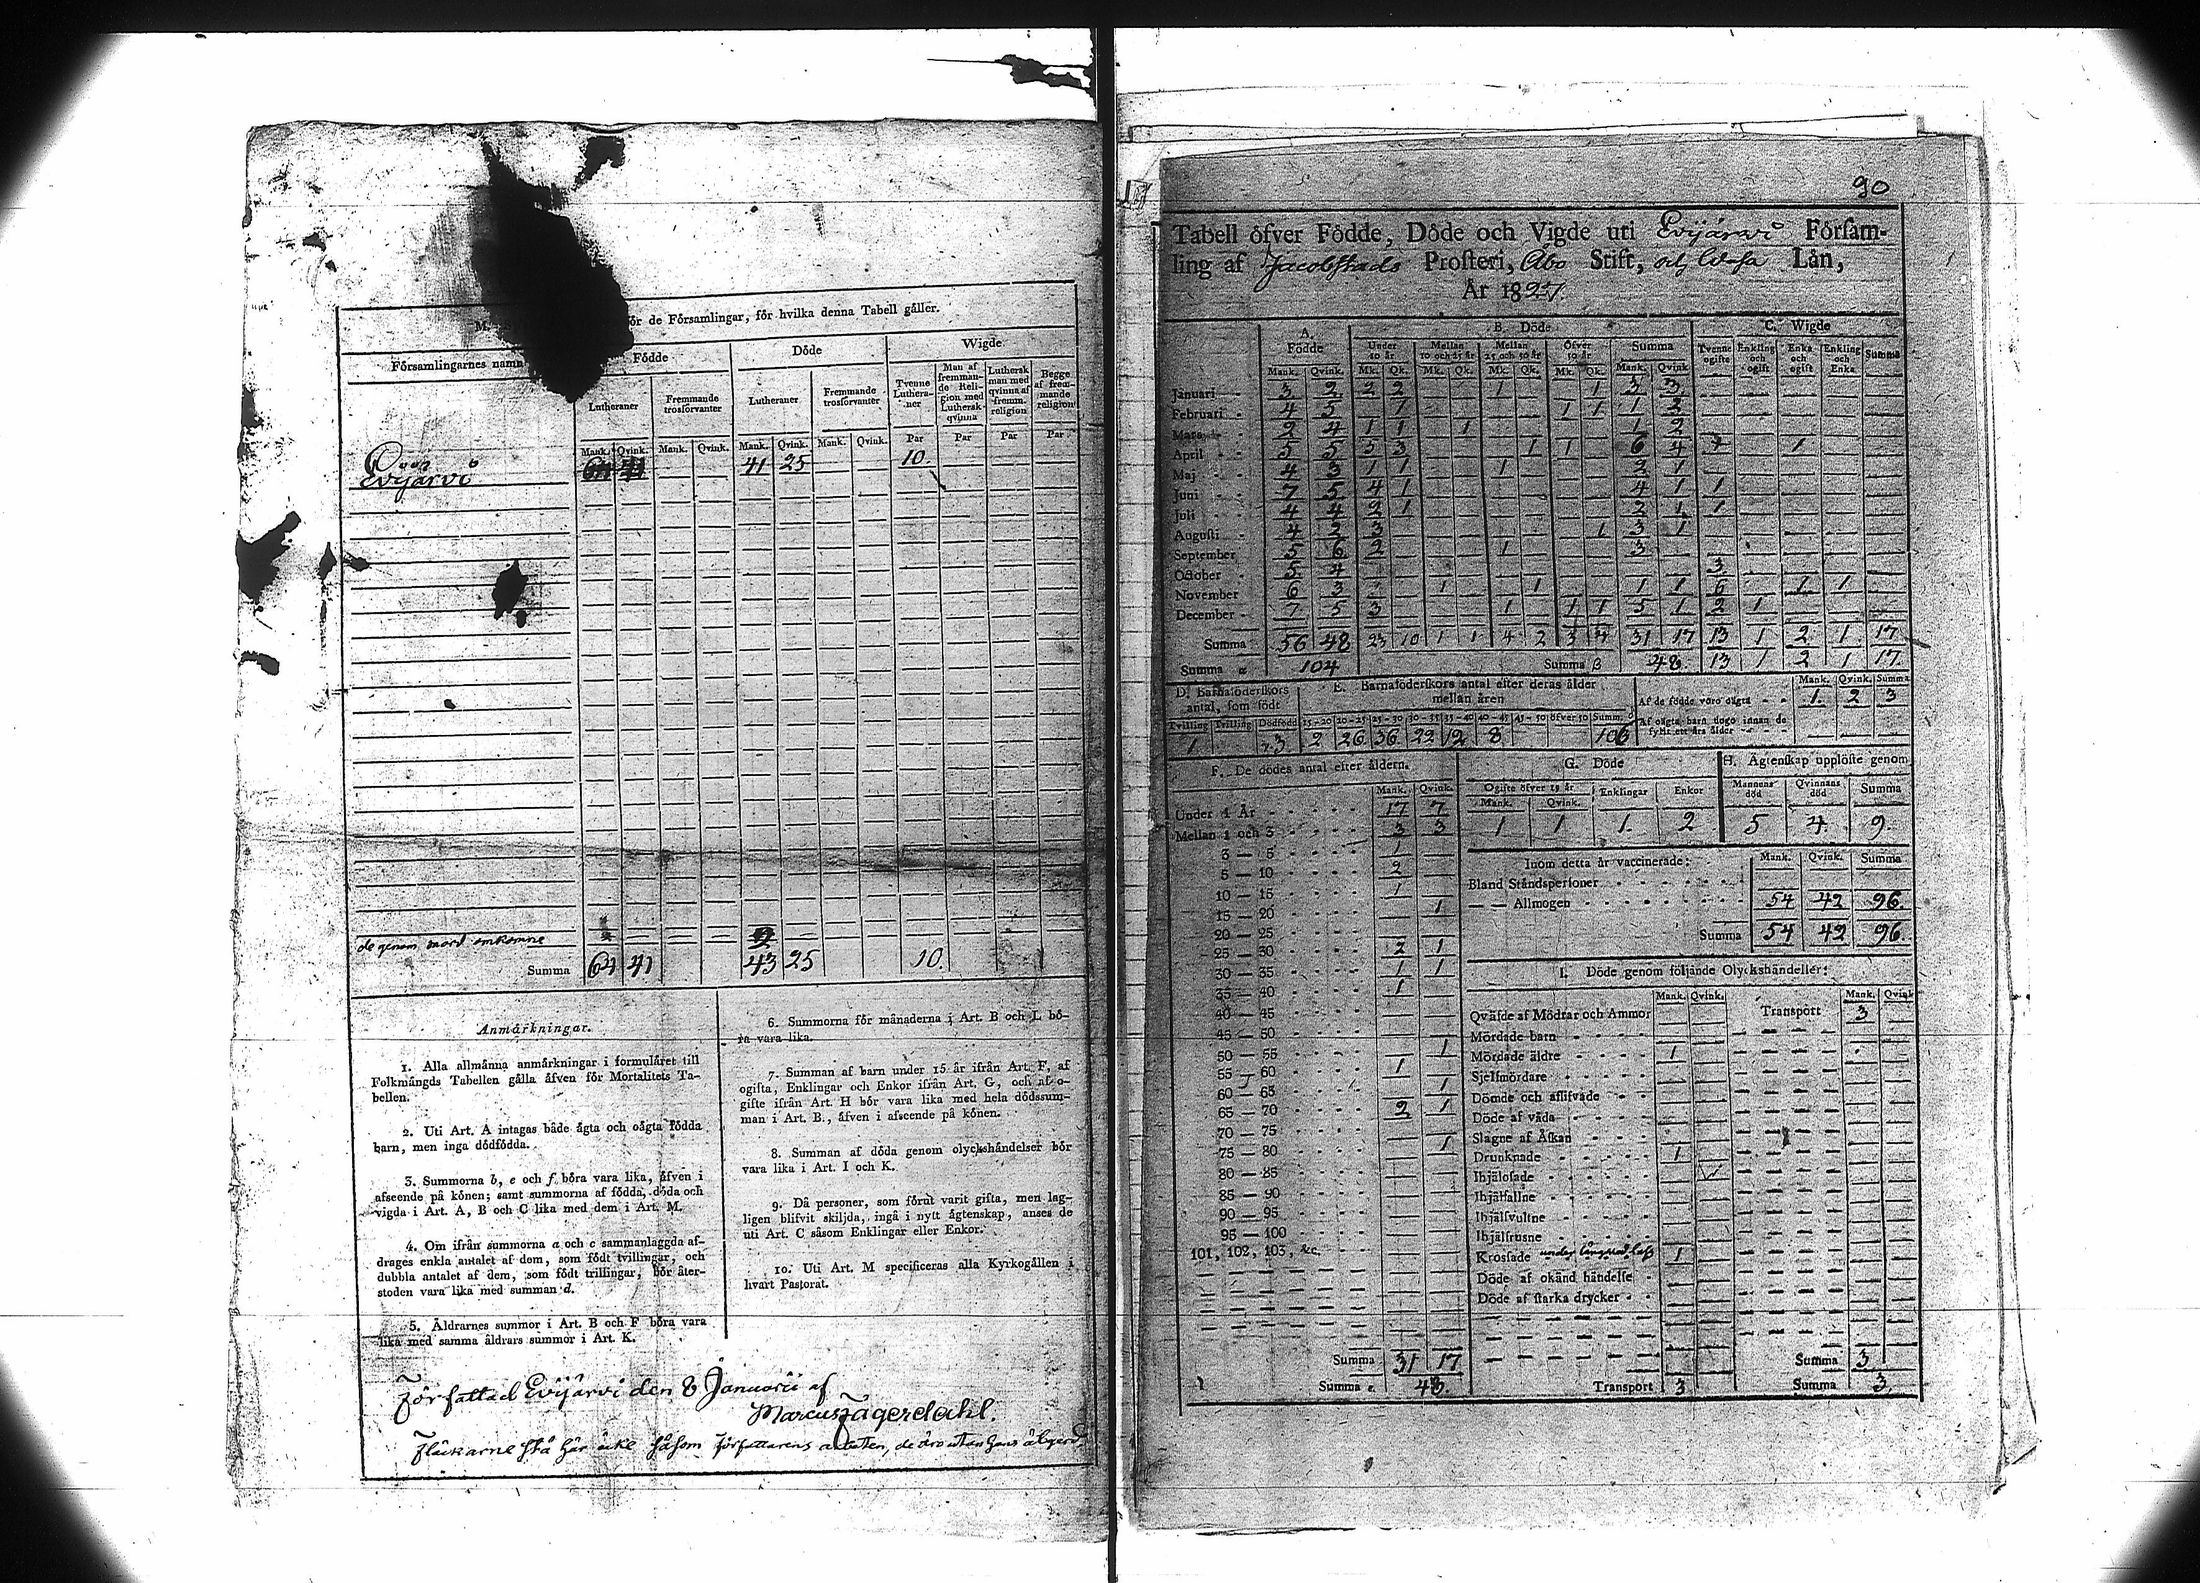 ör de Församlingar, för hvilka denna Tabell gäller.
Församlingarnes namn
Födde
Döde
Wigde
Lutheraner
Fremmande trosförvanter
Lutheraner
Fremmande trosförvanter
Tvenne Lutheraner
Man af fremmande Religion med Luthersk qvinna
Luthersk man med qvinna af fremm. religion
Begge af fremmande religion
Mank. Qvink. Mank. Qvink. Mank. Qvink. Mank. Qvink. Par Par Par Par
Evijärvi 41 25 10
de genom mord omkomne 2
Summa 64 41 43 25 10.
Anmärkningar.
1. Alla allmänna anmärkningar i formuläret till
Folkmängds Tabellen gälla äfven för Mortalitets Ta-
bellen.
2. Uti Art. A intagas både ägta och oägta födda
barn, men inga dödfödda.
3. Summorna b, e och f böra vara lika, äfven i
afseende på könen; samt summorna af födda, döda och
vigda i Art. A, B och C lika med dem i Art. M.
4. Om ifrån summorna a och c sammanlaggda af-
drages enkla antalet af dem, som födt tvillingar, och
dubbla antalet af dem, som födt trillingar, bör åter-
stoden vara lika med summan d.
5. Åldrarnes summor i Art. B och F böra vara
lika med samma åldrars summor i Art. K.
6. Summorna för månaderna i Art. B och L bö-
ra vara lika.
7. Summan af barn under 15 år ifrån Art. F, af
ogifta, Enklingar och Enkor ifrån Art. G, och af o-
gifte ifrån Art. H bör vara lika med hela dödssum-
man i Art. B., äfven i afseende på könen.
8. Summan af döda genom olyckshändelser bör
vara lika i Art. I och K.
9. Då personer, som förut varit gifta, men lag-
ligen blifvit skiljda, ingå i nytt ägtenskap, anses de
uti Art. C såsom Enklingar eller Enkor.
10. Uti Art. M specificeras alla Kyrkogällen i
hvart Pastorat.
Författad Evijärvi den 8 Januarii af
Marcus Jagerdahl.
Fläckarne stå här icke såsom författarens
90
Tabell öfver Födde, Döde och Vigde uti Evijärvi Försam-
ling af Jacobstads Prosteri, Åbo Stift, och Wasa Län,
År 1827.
A. Födde
B. Döde
C. Wigde
Under 10 år
Mellan 10 och 25 år
Mellan 25 och 50 år
Öfver 50 år
Summa
Tvenne ogifte
Enkling och ogift
Enka och ogift
Enkling och Enka
Summa
Mank. Qvink. Mk. Qk. Mk. Qk. Mk. Qk. Mk. Qk. Mank. Qvink
Januari 3 2 2 2 1 1 3 3
Februari 4 5 1 1 1 1 2
Mars 2 4 1 1 1 1 2
April 5 5 5 3 1 1 6 4 1
Maj 4 3 1 1 1 2 1
Juni 7 5 4 1 4 1 1
Juli 4 4 2 1 2 1 1
Augusti 4 2 3 1 3 1
September 5 6 2 1 3
October 5 4 3
November 6 3 1 1 1 1 6 1 1
December 7 5 3 1 1 1 5 1 2 1
Summa 56 48 23 10 1 1 4 2 3 4 31 17 13 1 2 1 17
Summa a 104 Summa β 48. 13 1 2 1 17.
D. Barnaföderskors antal, som födt
E. Barnaföderskors antal efter deras ålder mellan åren
Mank. Qvink. Summa
Af de födde voro oägta 1. 2 3
Af oägta barn dogo innan de fyllt ett års ålder
Tvilling Trilling Dödfödd 15-20 20-25 25-30 30-35 35-40 40-45 45-50 öfver 50 Summ.
1 3 2 26 36 22 12 8 106
F. De dödes antal efter åldern.
Mank. Qvink.
Under 1 År 17 7
Mellan 1 och 3 3 3
3 — 5 1
5 — 10 2
10 — 15 1
15 — 20 1
20 — 25
25 — 30 2 1
30 — 35 1 1
35 — 40 1
40 — 45
45 — 50
50 — 55 1
55 — 60 1
60 — 65 1
65 — 70 2 1
70 — 75
75 — 80 1
80 — 85
85 — 90
90 — 95
95 — 100
101, 102, 103, &c.
Summa 31 17
Summa 48.
G. Döde
Ogifte öfver 15 år
Mank. Qvink.
Enklingar
Enkor
1 1 1. 2
H. Ägtenskap upplöste genom
Mannens död
Qvinnans död
Summa
5 4. 9.
Inom detta år vaccinerade: Mank. Qvink. Summa
Bland Ståndspersoner
— — Allmogen 54 42 96.
Summa 54 42 96.
I. Döde genom följande Olyckshändelser:
Mank. Qvink. Mank. Qvink
Qväfde af Mödrar och Ammor Transport 3
Mördade barn
Mördade äldre 1
Sjelfmördare
Dömde och aflifvade
Döde af våda
Slagne af Åskan
Drunknade 1
Ihjälosade
Ihjälfallne
Ihjälsvultne
Ihjälfrusne
Krossade 1
Döde af okänd händelse
Döde af starka drycker
Summa 3
Transport 3 Summa 3.